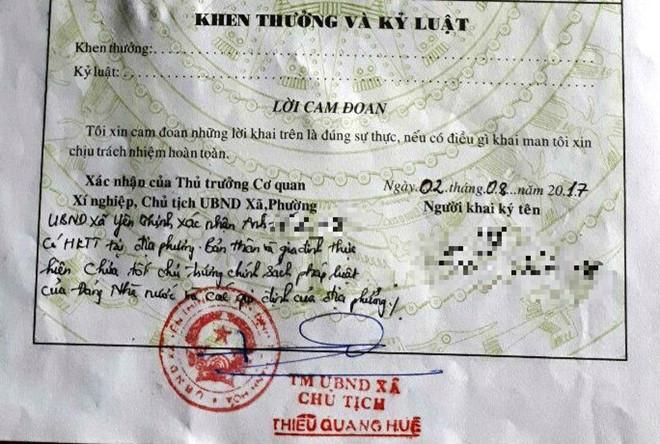 KHEN THƯỞNG VÀ KỶ LUẬT
Khen thưởng:
Kỷ luật:
LỜI CAM ĐOAN
Tôi xin cam đoan những lời khai trên là đúng sự thực, nếu có điều gì khai man tôi xin
chịu trách nhiệm hoàn toàn.
Xác nhận của Thủ trưởng Cơ quan
Xí nghiệp, Chủ tịch UBND Xã, Phường
Ngày 02 tháng 08 năm 2017
Người khai ký tên
UBND xã Yên Thịnh xác nhận Anh:
Có HKTT tại địa phương. Bản thân và gia đình thực
hiện chưa tốt chủ trương chính sách pháp luật
của Đảng Nhà nước và các qui định của địa phương./
TM UBND XÃ
CHỦ TỊCH
THIỀU QUANG HUÊ